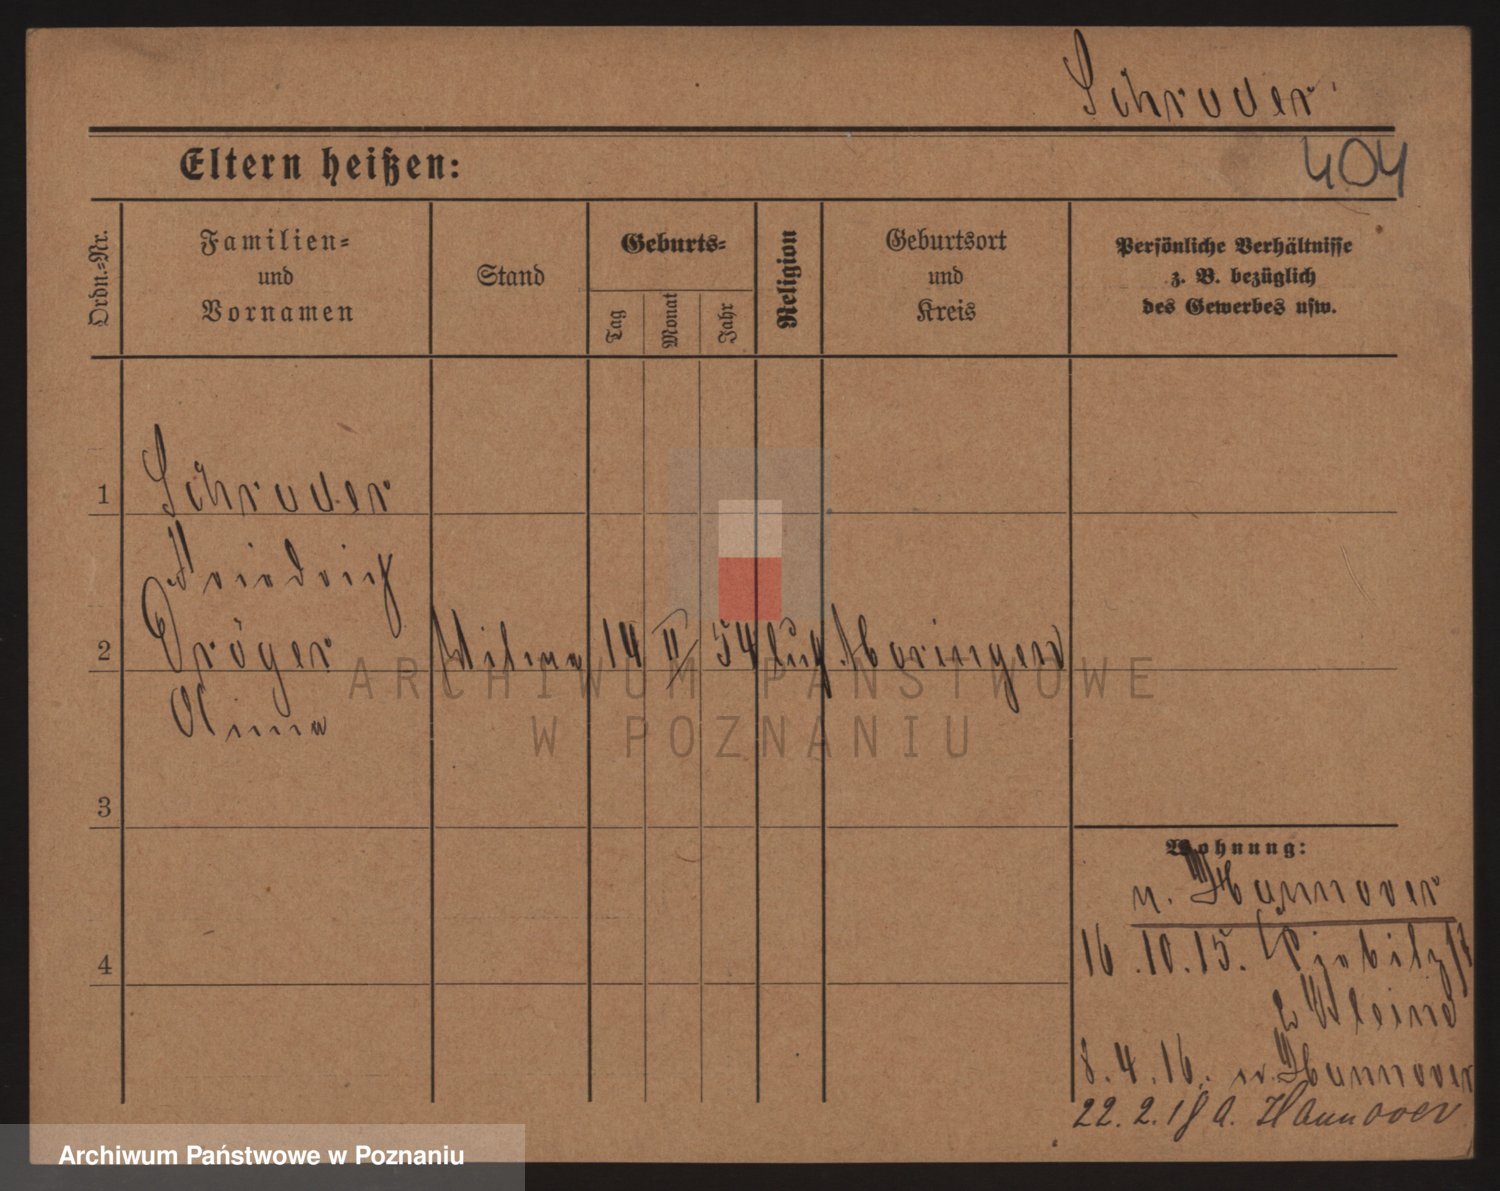 Schruder
404
Eltern heißen:
Ordn.=Nr.
Familien=
und
Vornamen
Stand
Geburts=
Tag
Monat
Jahr
Religion
Geburtsort
und
Kreis
Persönliche Verhältnisse
z. B. bezüglich
des Gewerbes usw.
1
Schruder
Friedrich
2
Dröger
14 II 54 Moringen
Anna
3
Wohnung:
n. Hannover
4
16.10.15.
Kleine
8.4.16. Hannover
22.2.18 a. Hannover
ARCHIWUM PAŃSTWOWE
W POZNANIU
Archiwum Państwowe w Poznaniu